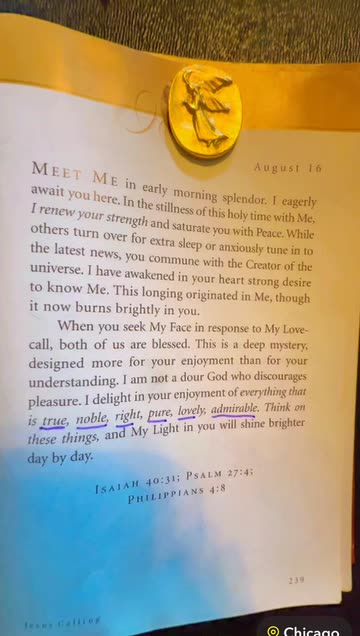 August 16
MEET ME in early morning splendor. I eagerly
await you here. In the stillness of this holy time with Me,
I renew your strength and saturate you with Peace. While
others turn over for extra sleep or anxiously tune in to
the latest news, you commune with the Creator of the
universe. I have awakened in your heart strong desire
to know Me. This longing originated in Me, though
it now burns brightly in you.
When you seek My Face in response to My Love-
call, both of us are blessed. This is a deep mystery,
designed more for your enjoyment than for your
understanding. I am not a dour God who discourages
pleasure. I delight in your enjoyment of everything that
is true, noble, right, pure, lovely, admirable. Think on
these things, and My Light in you will shine brighter
day by day.
ISAIAH 40:31; PSALM 27:4;
PHILIPPIANS 4:8
239
Jesus Calling
Chicago